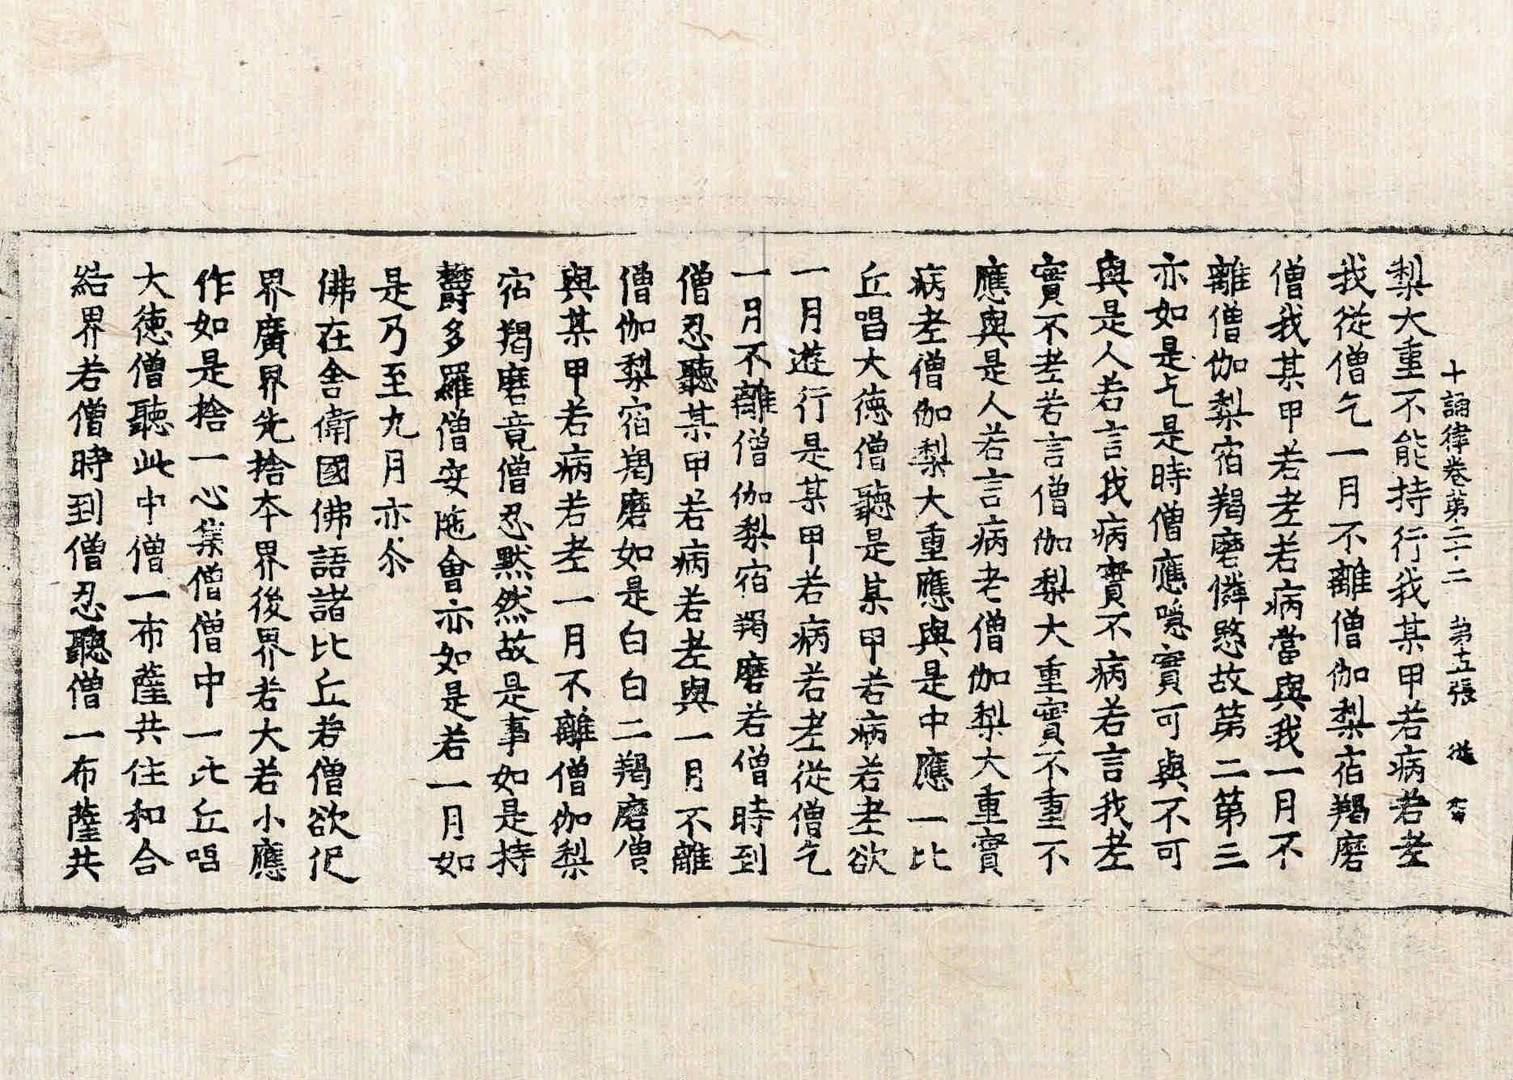 十誦律卷第二十二 第五張 𨒪
梨大重不能持行我某甲若病若老
我從僧乞一月不離僧伽梨宿羯磨
僧我某甲若老若病當與我一月不
離僧伽梨宿羯磨憐愍故第二第三
亦如是乞是時僧應籌量可與不可
與是人若言我病實不病若言我老
實不老若言僧伽梨大重實不重不
應與是人若言病老僧伽梨大重實
病老僧伽梨大重應與是中應一比
丘唱大德僧聽是某甲若病若老欲
一月遊行是某甲若病若老從僧乞
一月不離僧伽梨宿羯磨若僧時到
僧忍聽某甲若病若老與一月不離
僧伽梨宿羯磨如是白白二羯磨僧
與某甲若病若老一月不離僧伽梨
宿羯磨竟僧忍默然故是事如是持
欝多羅僧安陁會亦如是若一月如
是乃至九月亦尒
佛在舍衛國佛語諸比丘若僧欲促
界廣界先捨本界後界若大若小應
作如是捨一心集僧僧中一比丘唱
大德僧聽此中僧一布薩共住和合
結界若僧時到僧忍聽僧一布薩共